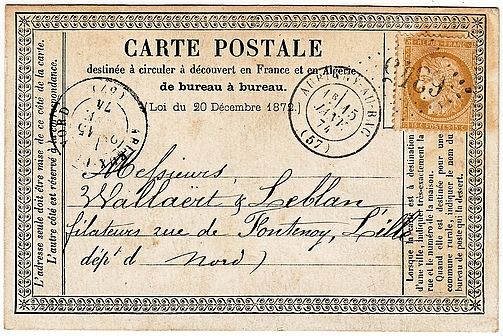 CARTE POSTALE
destinée à circuler à découvert en France et en Algérie,
de bureau à bureau.
(Loi du 20 Décembre 1872.)
L'adresse seule doit être mise de ce côté de la carte.
L'autre côté est réservé à la correspondance.
15
JANV.
74
(57)
Messieurs
Wallaert & Leblan
filateurs rue de Fontenoy, Lille
dépt d Nord)
Lorsque la carte est à destination
d'une ville, indiquer très-exactement la
rue et le numéro de la maison.
Quand elle est destinée pour une
commune rurale, indiquer le nom du
bureau de poste qui la dessert.